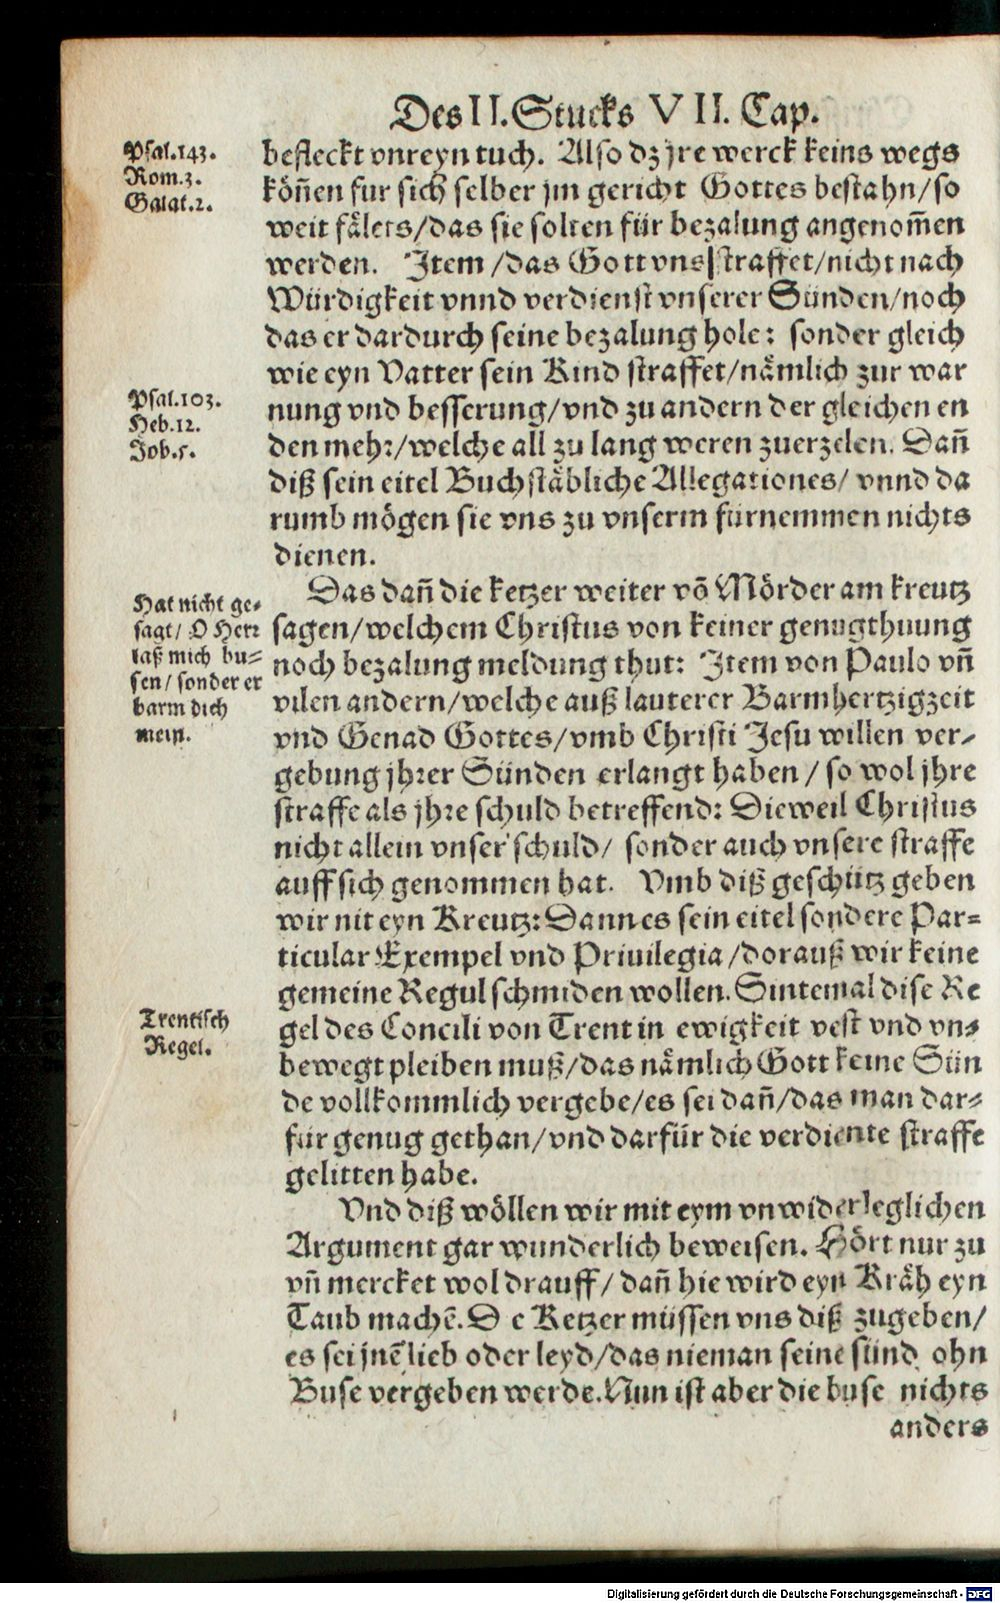 Des II. Stucks VII. Cap.
Psal.143.
Rom.3.
Galat.2.
befleckt vnreyn tuch. Also dz jre werck keins wegs
köñen fur sich selber jm gericht Gottes bestahn/so
weit fälets/das sie solten für bezalung angenom̃en
werden. Item/das Gott vns straffet/nicht nach
Würdigkeit vnnd verdienst vnserer Sünden/noch
das er dardurch seine bezalung hole: sonder gleich
wie eyn Vatter sein Kind straffet/nämlich zur war
Psal.103.
Heb.12.
Job.5.
nung vnd besserung/vnd zu andern der gleichen en
den mehr/welche all zu lang weren zuerzelen. Dañ
diß sein eitel Buchstäbliche Allegationes/ vnnd da
rumb mögen sie vns zu vnserm fürnemmen nichts
dienen.
Hat nicht ge-
sagt/ O Herr
laß mich bu-
sen/ sonder er
barm dich
mein.
Das dañ die ketzer weiter võ Mörder am kreutz
sagen/welchem Christus von keiner genugthuung
noch bezalung meldung thut: Item von Paulo vñ
vilen andern/welche auß lauterer Barmhertzigzeit
vnd Genad Gottes/vmb Christi Jesu willen ver-
gebung jhrer Sünden erlangt haben/ so wol jhre
straffe als jhre schuld betreffend: Dieweil Christus
nicht allein vnser schuld/ sonder auch vnsere straffe
auff sich genommen hat. Vmb diß geschütz geben
wir nit eyn Kreutz: Dann es sein eitel sondere Par-
ticular Exempel vnd Priuilegia/dorauß wir keine
gemeine Regul schmiden wollen. Sintemal dise Re
Trentisch
Regel.
gel des Concili von Trent in ewigkeit vest vnd vn-
bewegt pleiben muß/das nämlich Gott keine Sün
de vollkommlich vergebe/es sei dañ/das man dar-
für genug gethan/vnd darfür die verdiente straffe
gelitten habe.
Vnd diß wöllen wir mit eym vnwiderleglichen
Argument gar wunderlich beweisen. Hört nur zu
vñ mercket wol drauff/ dañ hie wird eyn Kräh eyn
Taub machẽ. D e Ketzer müssen vns diß zugeben/
es sei jnẽ lieb oder leyd/das nieman seine sünd ohn
Buse vergeben werde. Nun ist aber die buse nichts
anders
Digitalisierung gefördert durch die Deutsche Forschungsgemeinschaft - DFG